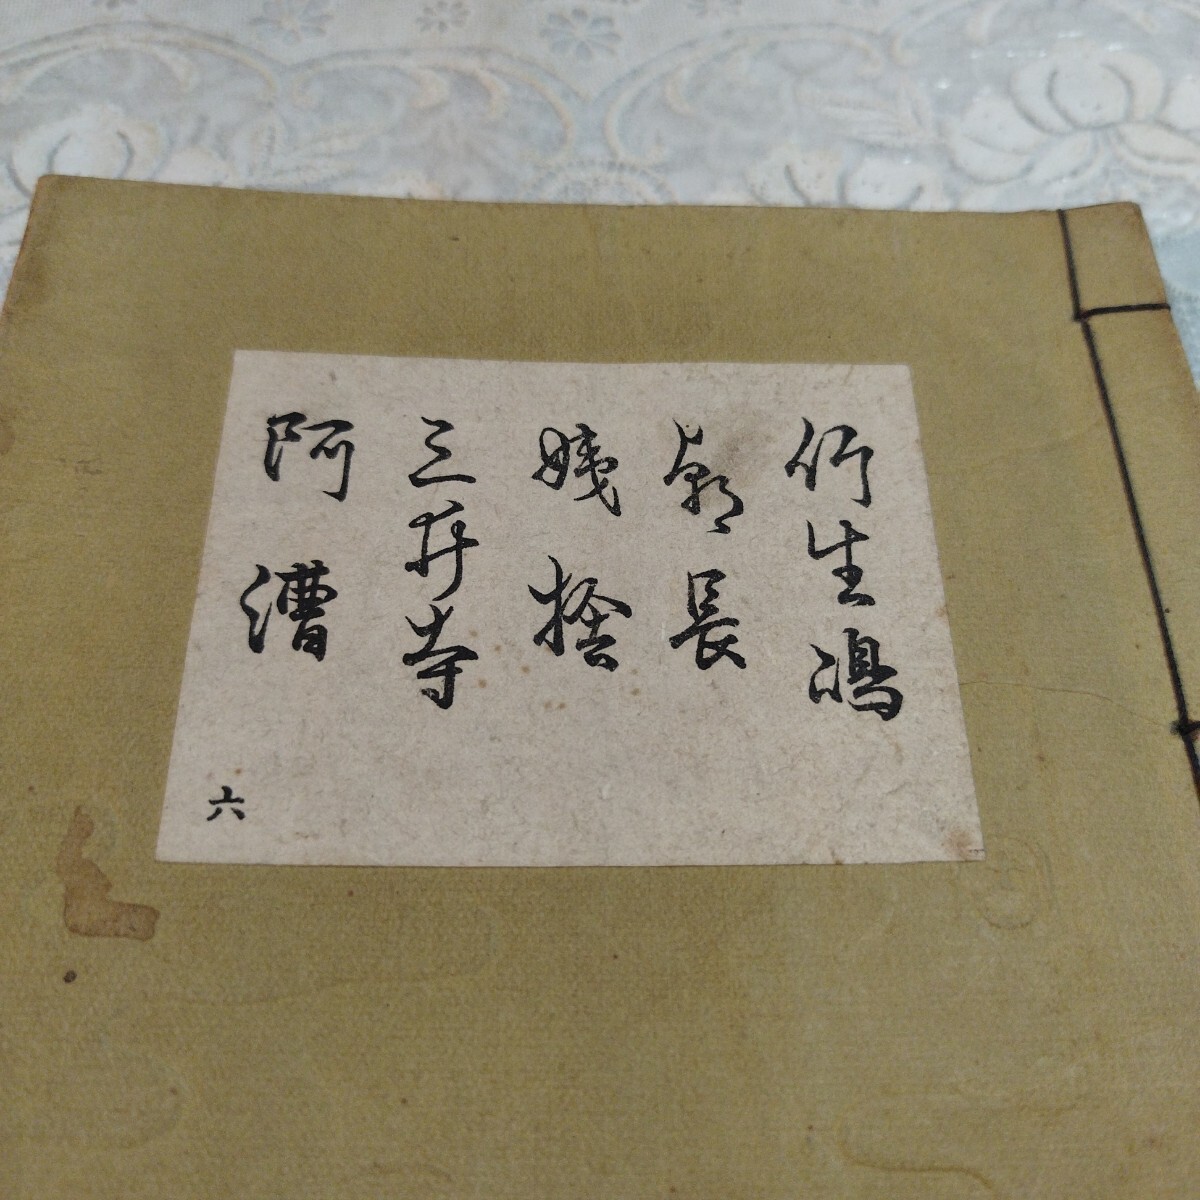 竹生嶋
朝長
姨捨
三井寺
阿漕
六